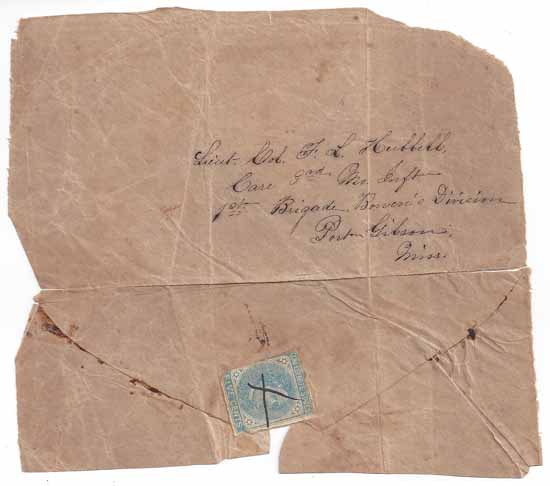 Lieut. Col. F. L. Hubbell,
Care 2nd Mo. Inft
1st Brigade Bowen's Division
Port Gibson,
Miss.